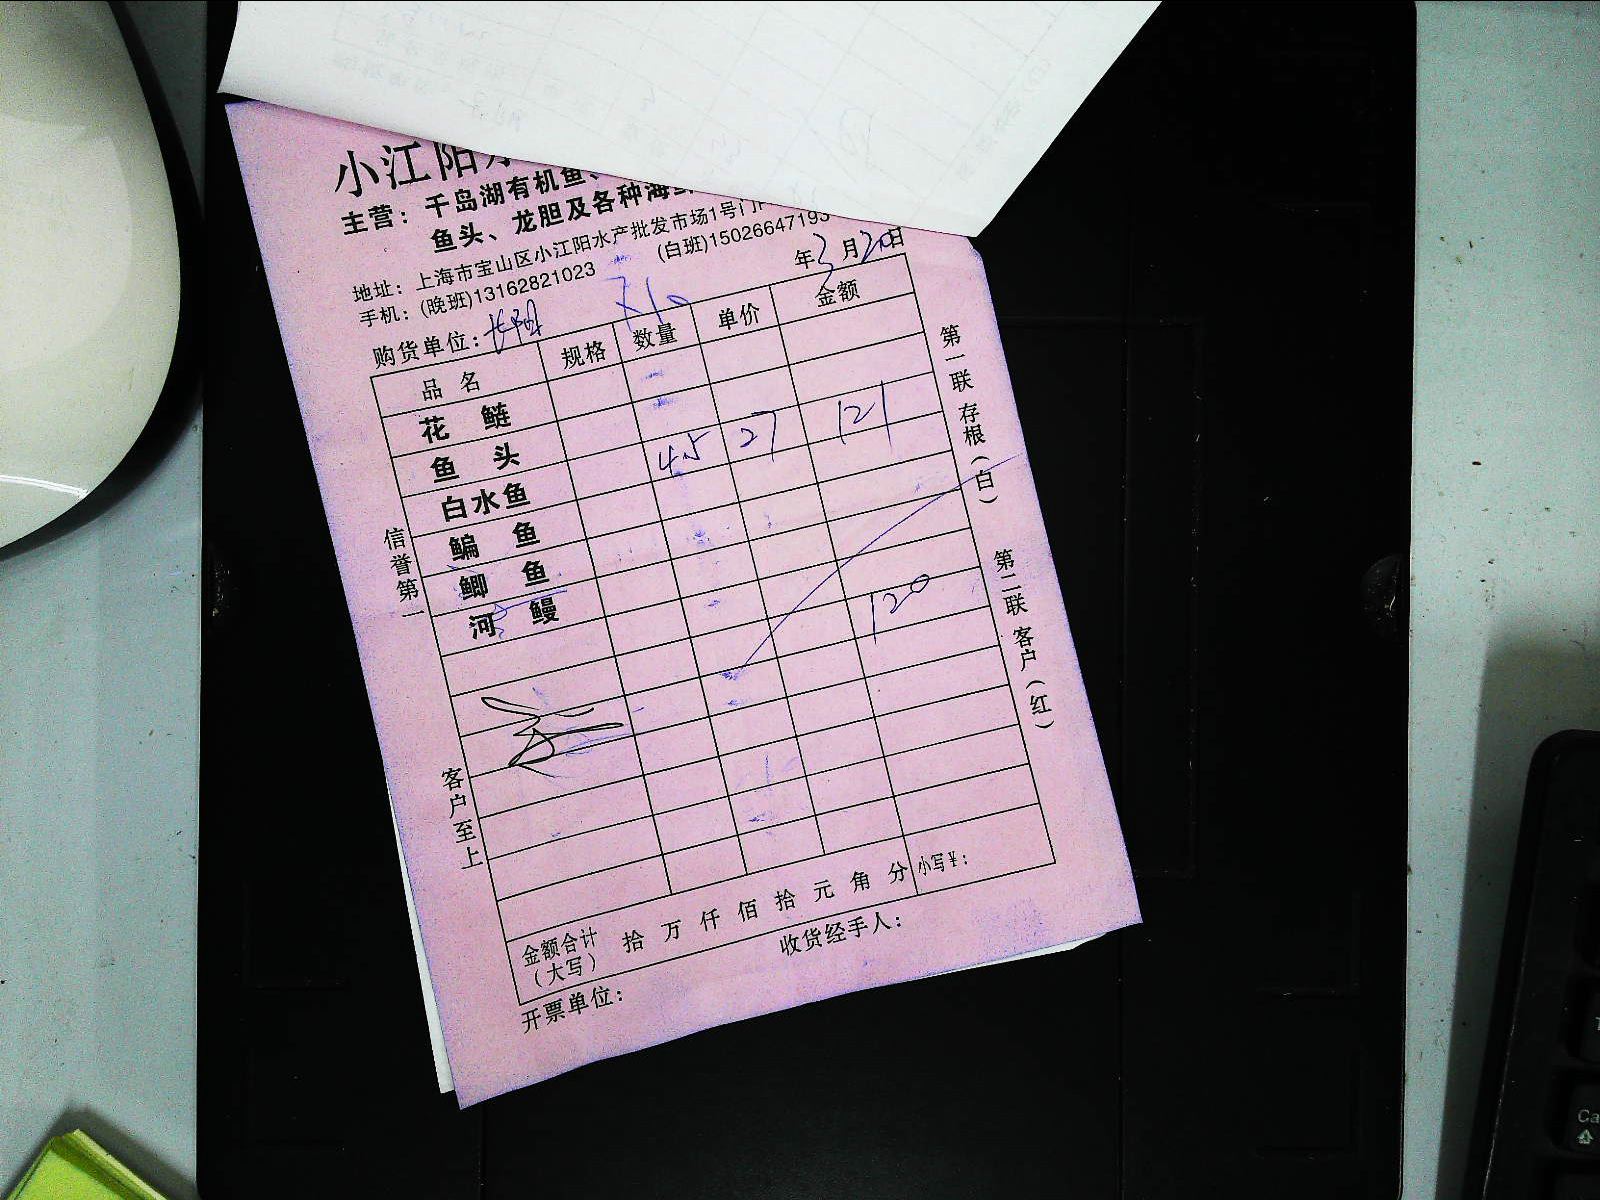 小江阳
主营：千岛湖有机鱼、
鱼头、龙胆及各种海鲜
地址：上海市宝山区小江阳水产批发市场1号门
手机：(晚班)13162821023 (白班)15026647193
年3月20日
购货单位：长阳
品名 规格 数量 单价 金额
花鲢
鱼头
白水鱼 4.5 27 121
鳊鱼
鲫鱼
河鳗
120
金额合计（大写） 拾 万 仟 佰 拾 元 角 分 小写¥：
开票单位： 收货经手人：
信誉第一
客户至上
第一联 存根（白）
第二联 客户（红）